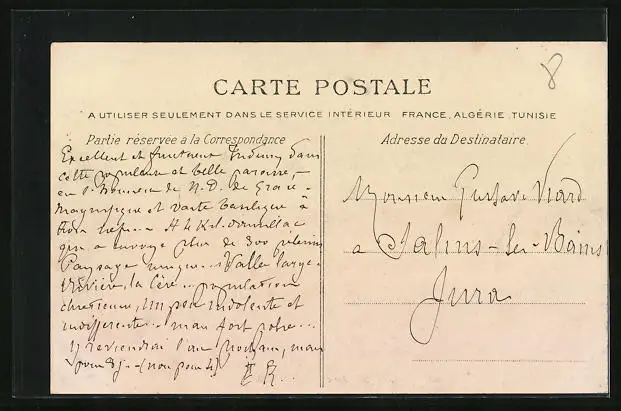 8
CARTE POSTALE
A UTILISER SEULEMENT DANS LE SERVICE INTÉRIEUR FRANCE, ALGÉRIE, TUNISIE
Partie réservée à la Correspondance
Excellent et fructueux dans
cette populeuse et belle paroisse,
en l'honneur de N.D. de Grace.
Magnifique et vaste basilique à
trois nefs. A 4 K.
qui a envoyé plus de 300 pèlerins
Paysage unique... Vallée large.
Rivière, la Cère... population
chrétienne, un peu indolente et
indifférente... mais fort polie...
J'y reviendrai l'an prochain, mais
pour 8 j. (non pour 4)
Adresse du Destinataire.
Monsieur Gustave Viard
a Salins-les-Bains
Jura